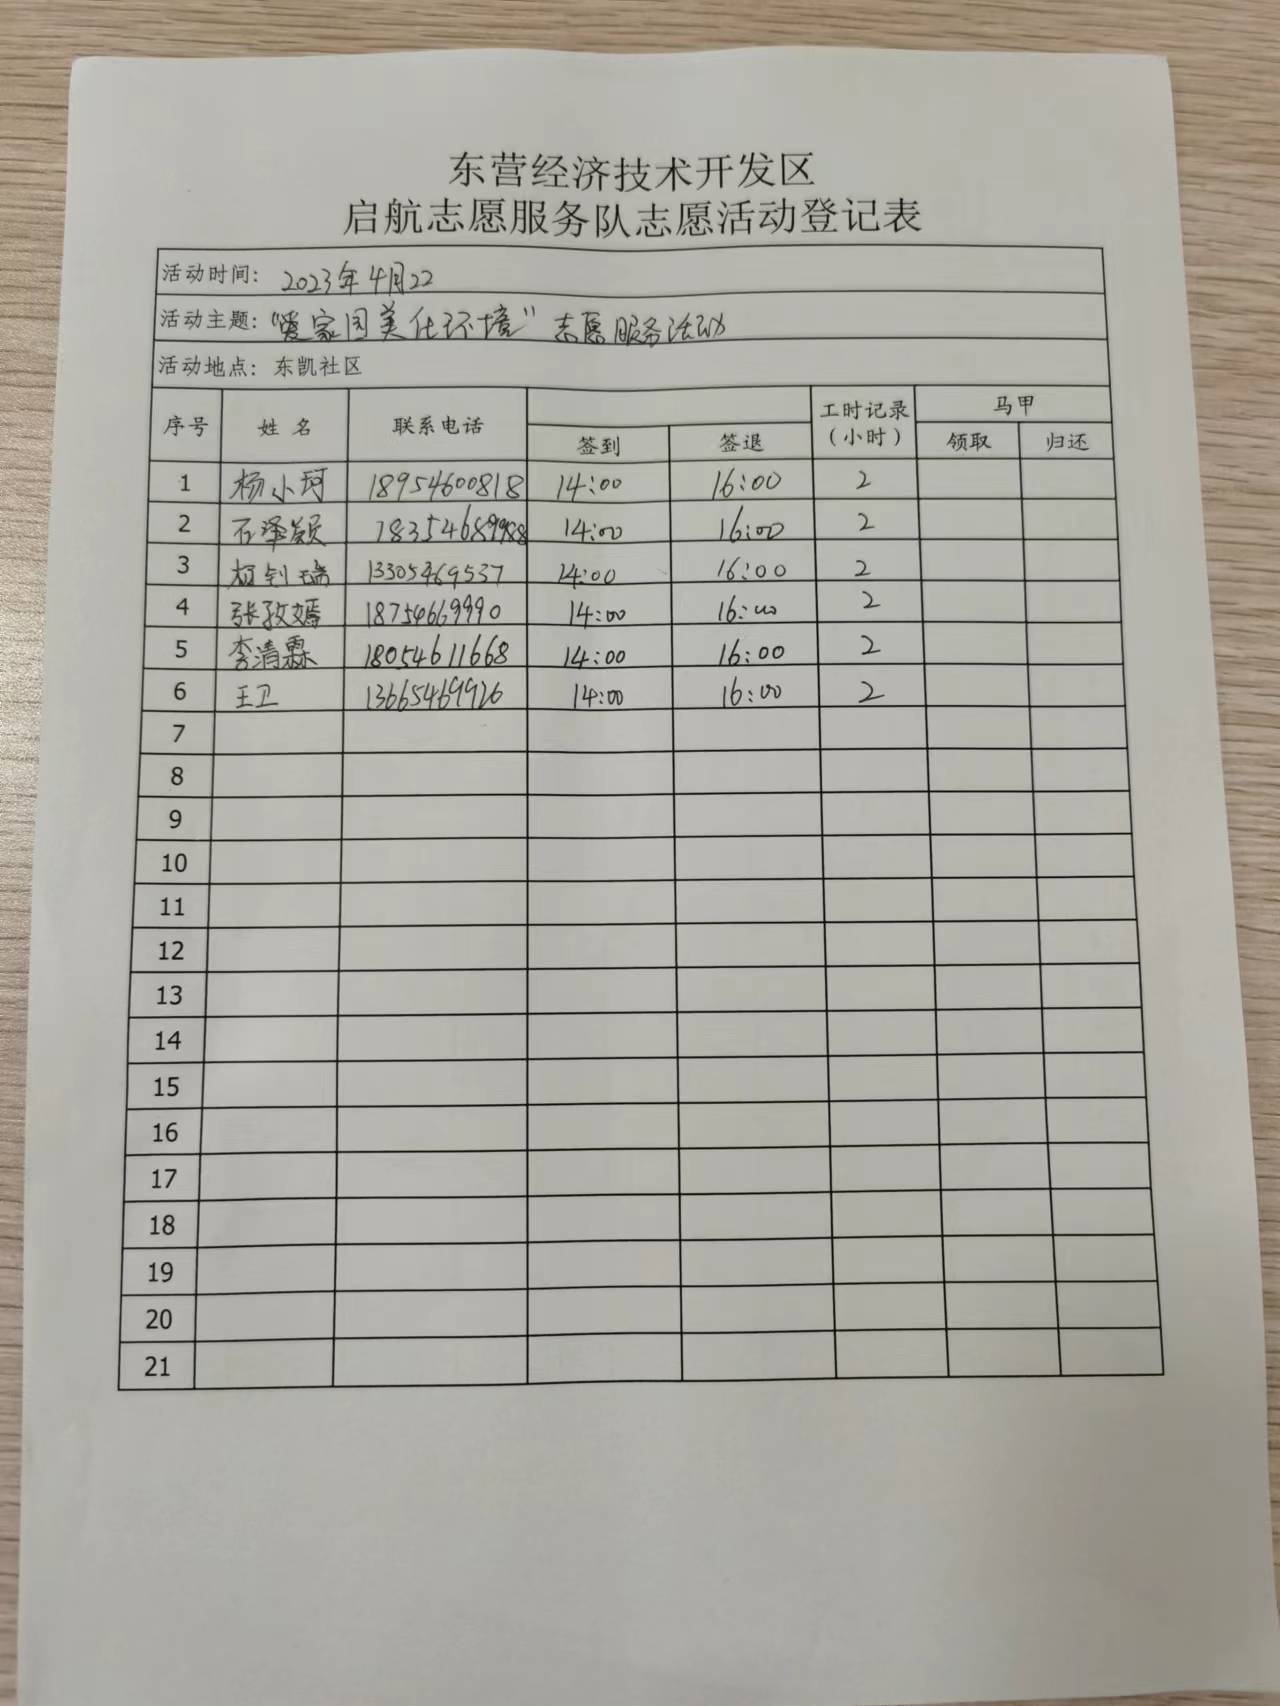 东营经济技术开发区
启航志愿服务队志愿活动登记表
活动时间: 2023年4月22
活动主题:“爱家园美化环境”志愿服务活动
活动地点: 东凯社区
序号 姓名 联系电话 签到 签退 工时记录(小时) 马甲 领取 归还
1 杨小珂 18954600818 14:00 16:00 2
2 石泽颖 14:00 16:00 2
3 13305469537 14:00 16:00 2
4 张孜嫣 18754669990 14:00 16:00 2
5 李清霖 18054611668 14:00 16:00 2
6 王卫 13665469926 14:00 16:00 2
7
8
9
10
11
12
13
14
15
16
17
18
19
20
21